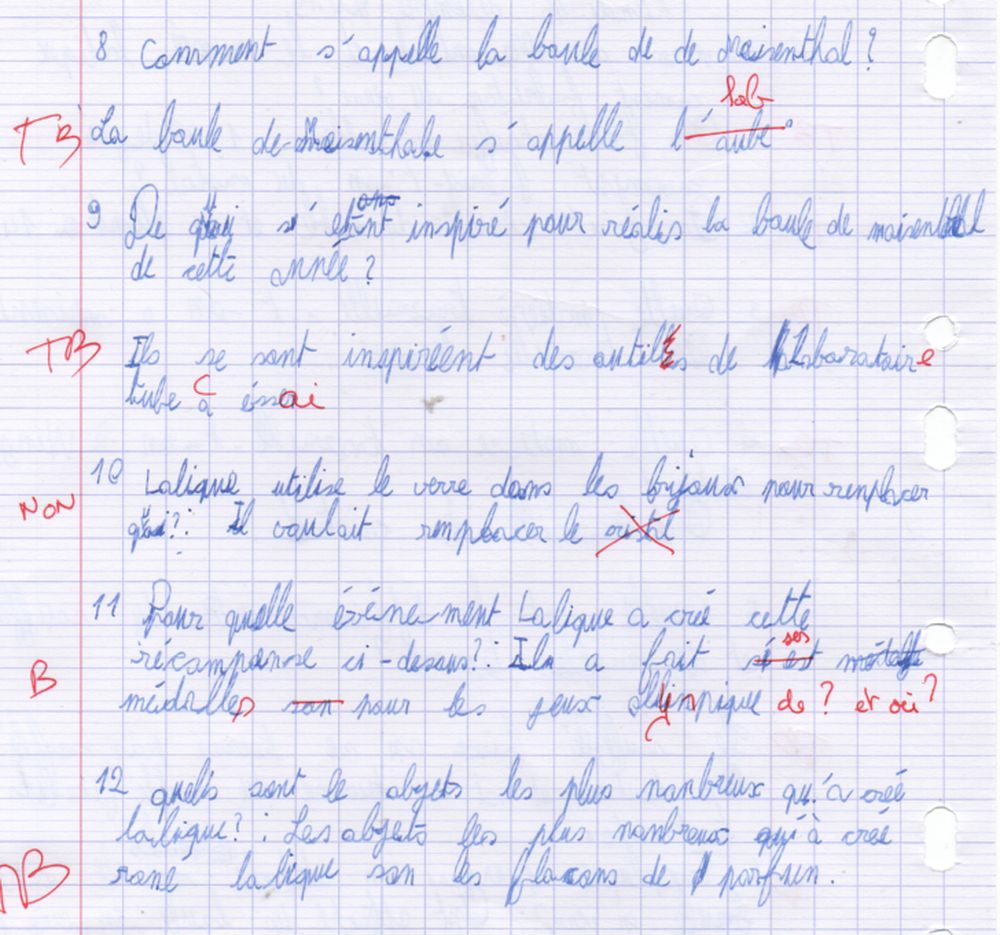 8 Comment s'appelle la boule de de Moisenthal ?
lab
TB La boule de Moisenthale s'appelle l'aube
ons
9 De quoi s'étant inspiré pour réalis la boule de moisenthal
de cette année ?
TB Ils se sont inspiréent des outills de laboratoire
tube a éssai
10 Lalique utilise le verre dans les bijoux pour remplacer
NON quoi ? : Il voulait remplacer le cristil
11 Pour quelle événement Lalique a créé cette
ses
récomponse ci-dessus ? : Il a fait s'est
B médailles son pour les jeux ollympique de ? et où ?
12 quels sont le objets les plus nombreux qu'a créé
lalique ? : Les objets les plus nombreux qu'à créé
TB rané lalique son les flacons de parfun.